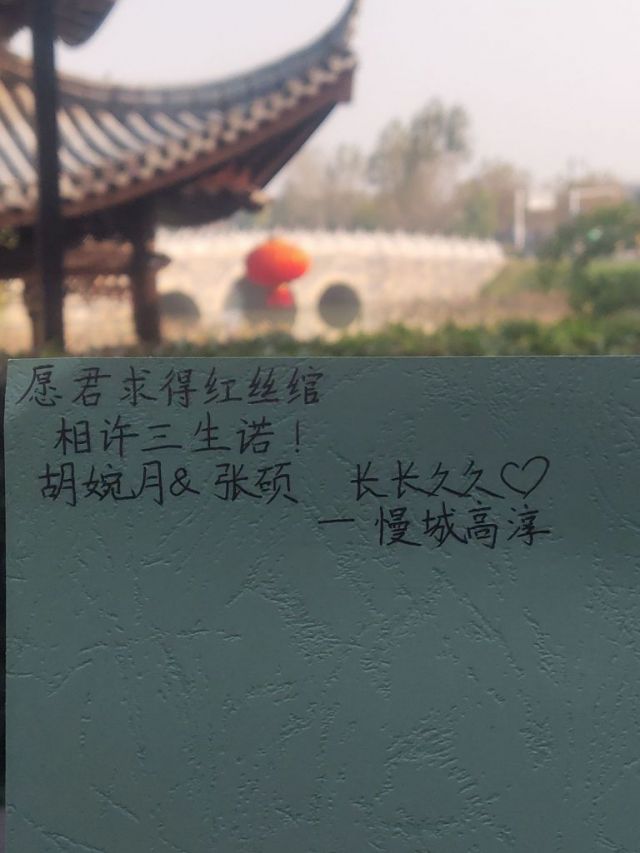 愿君求得红丝绾
相许三生诺!
胡婉月& 张硕 长长久久♡
— 慢城高淳